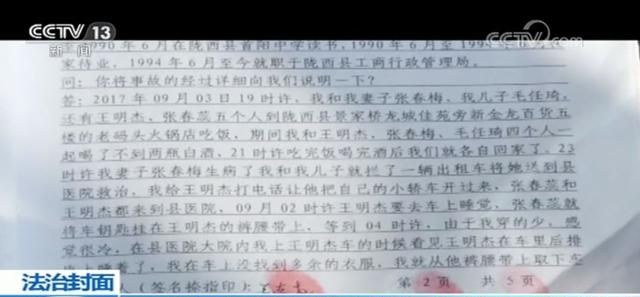 CCTV 13
新闻
CCTV
至1990年6月在陇西县首阳中学读书，1990年6月至199
家待业，1994年6月至今就职于陇西县工商行政管理局。
问：你将事故的经过详细向我们说明一下？
答：2017年09月03日19时许，我和我妻子张春梅、我儿子毛任琦，
还有王明杰，张春蕊五个人到陇西县景家桥龙城佳苑旁新金龙百货五
楼的老码头火锅店吃饭，期间我和王明杰，张春梅、毛任琦四个人一
起喝了不到两瓶白酒，21时许吃完饭喝完酒后我们就各自回家了。23
时许我妻子张春梅生病了我和我儿子就拦了一辆出租车将她送到县
医院救治，我给王明杰打电话让他把自己的小轿车开过来，张春蕊和
王明杰都来到县医院，09月02时许王明杰要去车上睡觉，张春蕊就
将车钥匙挂在王明杰的裤腰带上，等到04时许，由于我穿的少，感
觉很冷，在县医院大院内我上王明杰车的时候看见王明杰在车里后排
睡着了，我在车上没找到多余的衣服，我就从他裤腰带上取下车
人（签名捺指印） 第2页 共5页
法治封面